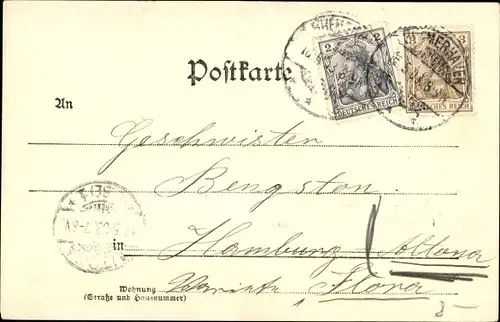 2 2
DEUTSCHES REICH
3
DEUTSCHES REICH
Postkarte
An
Geschwister
Bengston
in Hamburg-Altona
Wohnung
(Straße und Hausnummer)
Varieté Flora